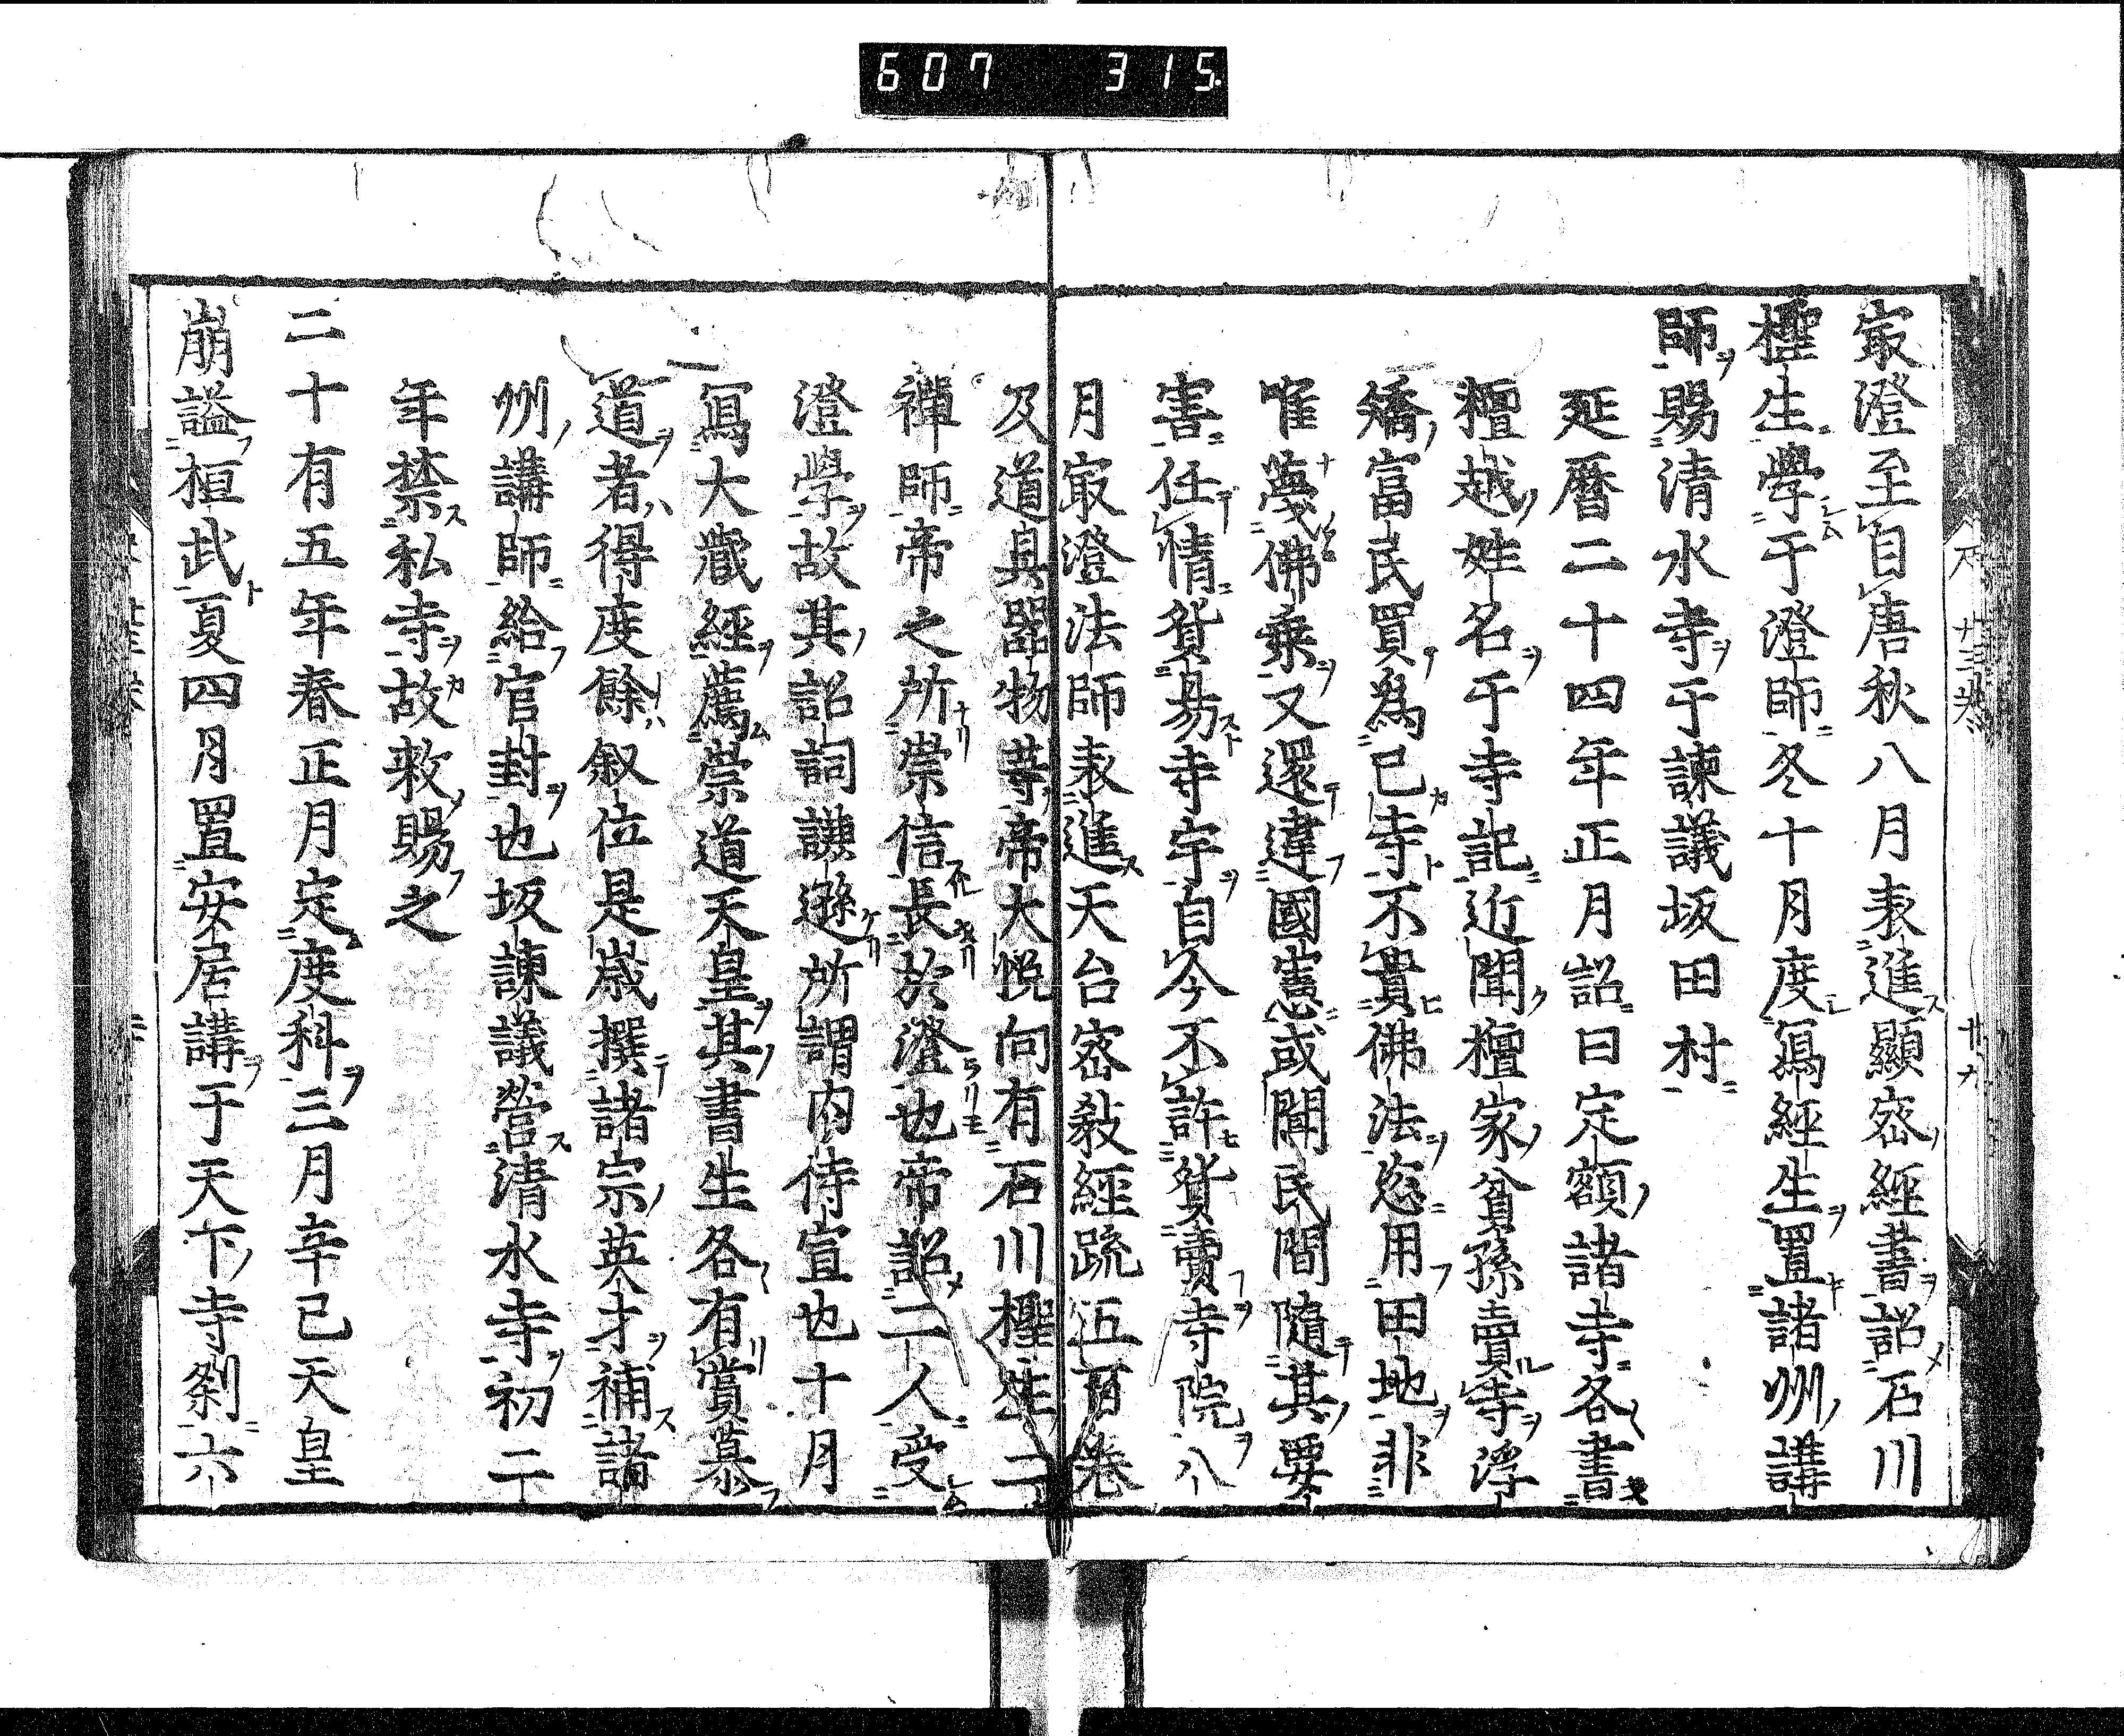 607 315
㝡澄至自唐秋八月表進顯宻經書詔石川
檉生學于澄師冬十月度寫經生置諸州講
師賜清水寺于諫議坂田村
延曆二十四年正月詔曰定額諸寺各書
檀越姓名于寺記近聞檀家貧孫賣寺浮
矯富民買爲己寺不貫佛法恣用田地非
唯蔑佛乗又還違國憲或聞民間隨其要
害任情貿易寺宇自今不許貿賣寺院八
月㝡澄法師表進天台宻敎經疏五百卷
及道具器物等帝大悅向有石川檉生二
禪師帝之所崇信長於澄也帝詔二人受
澄學故其詔詞謙遜所謂内侍宣也十月
寫大藏經薦崇道天皇其書生各有賞慕
道者得度餘叙位是歳撰諸宗英才補諸
州講師給官封也坂諫議營清水寺初二
年禁私寺故敕賜之
二十有五年春正月定度科三月辛巳天皇
崩謚桓武夏四月置安居講于天下寺刹六